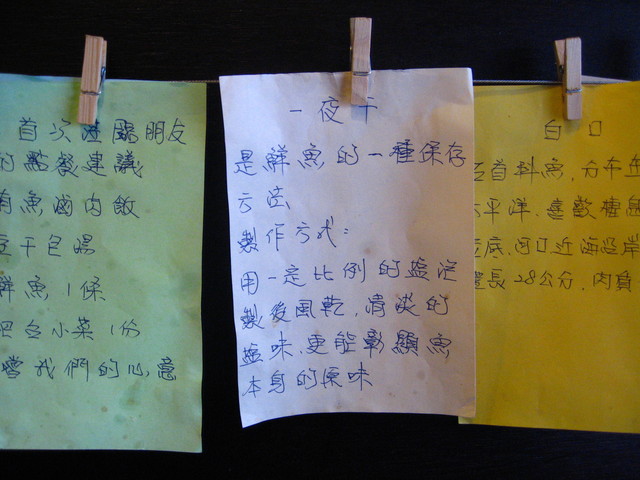 首次蒞臨朋友
的點餐建議
魚滷肉飯
豆干
鮮魚1條
小菜1份
嚐我們的心意
一夜干
是鮮魚的一種保存
方法
製作方式:
用一定比例的鹽淹
製後風乾,清淡的
鹽味,更能彰顯魚
本身的原味
白口
石首科魚,分布在
太平洋.喜歡棲息
底.河口近海沿岸
體長28公分,肉質